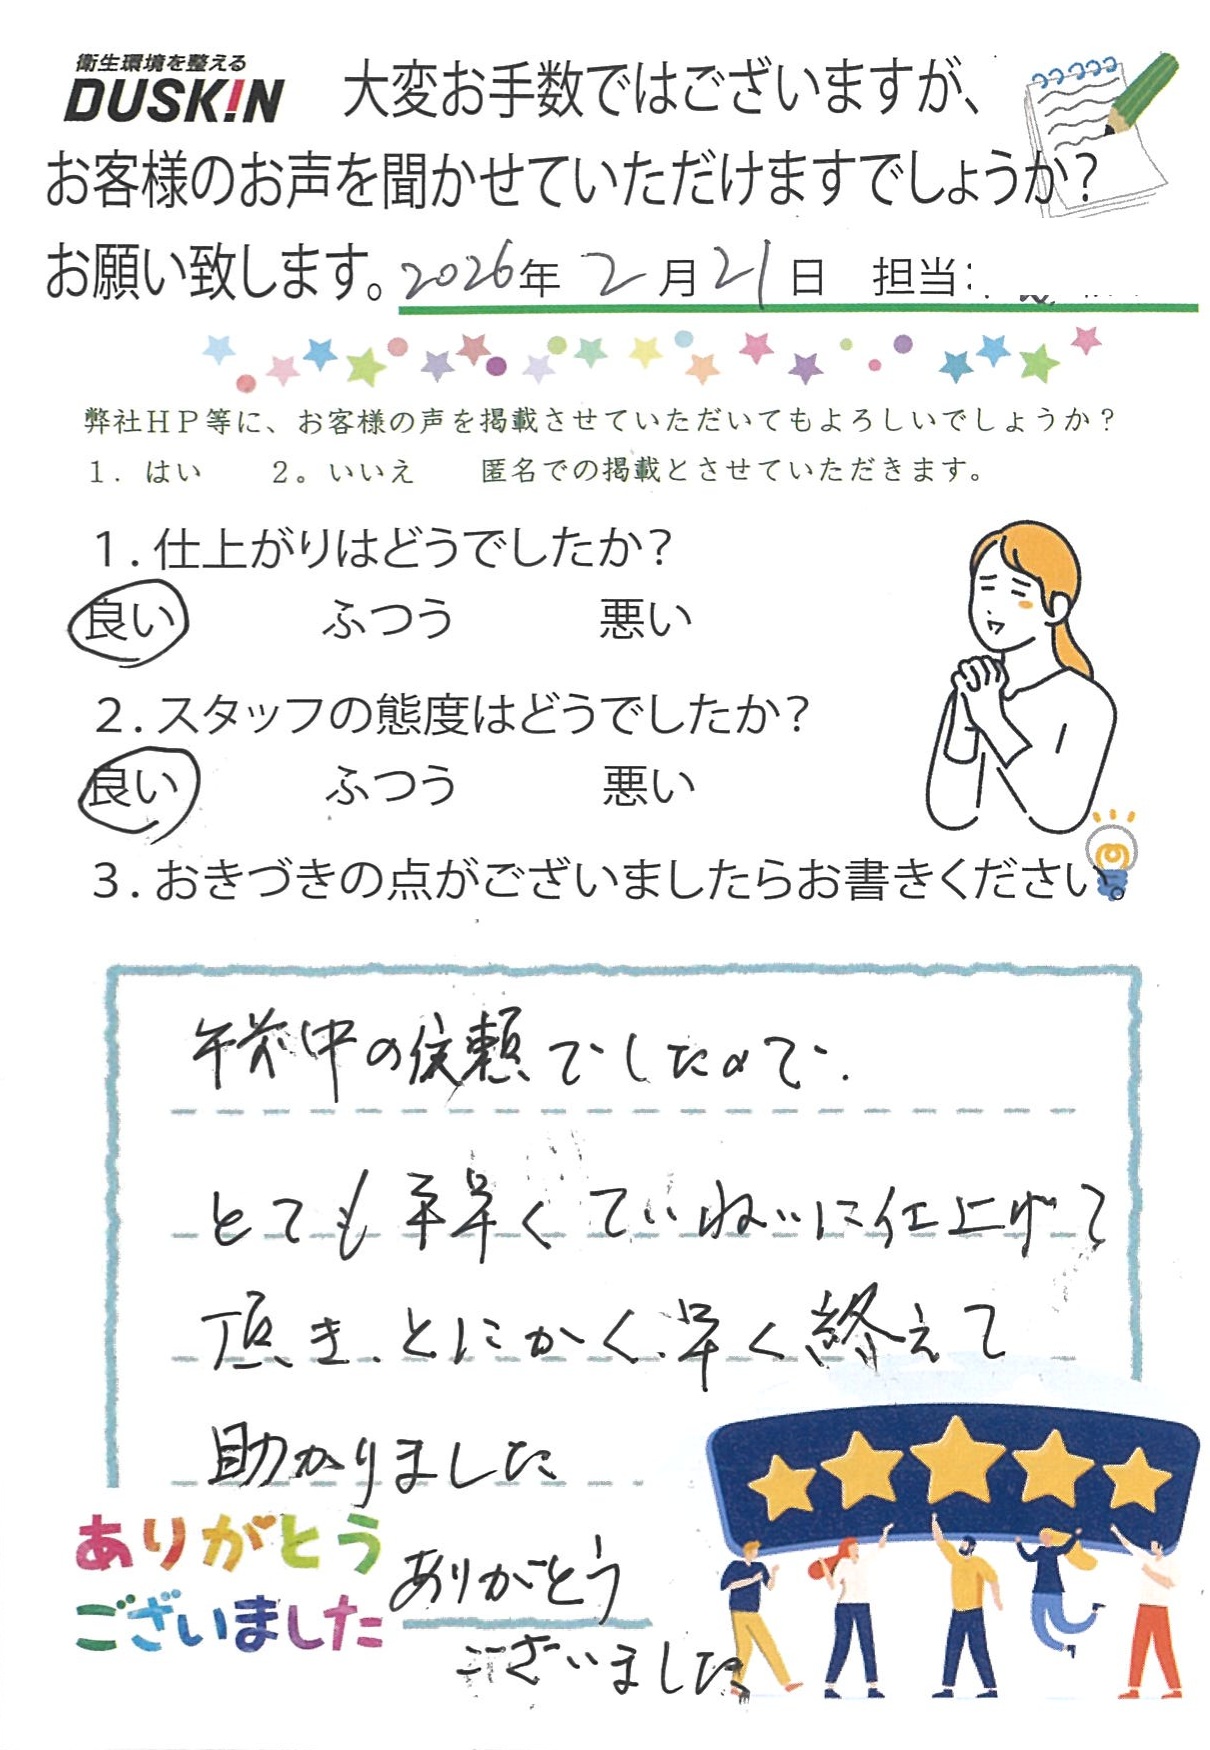 衛生環境を整える
DUSKIN 大変お手数ではございますが、
お客様のお声を聞かせていただけますでしょうか?
お願い致します。2026年 2月21日 担当:
弊社HP等に、お客様の声を掲載させていただいてもよろしいでしょうか?
1. はい 2。いいえ 匿名での掲載とさせていただきます。
1. 仕上がりはどうでしたか?
良い ふつう 悪い
2. スタッフの態度はどうでしたか?
良い ふつう 悪い
3. おきづきの点がございましたらお書きください。
午前中の依頼でしたので.
とても手早くていねいに仕上げて
頂き、とにかく早く終えて
助かりました
ありがとう
ございました
ありがとう
ございました